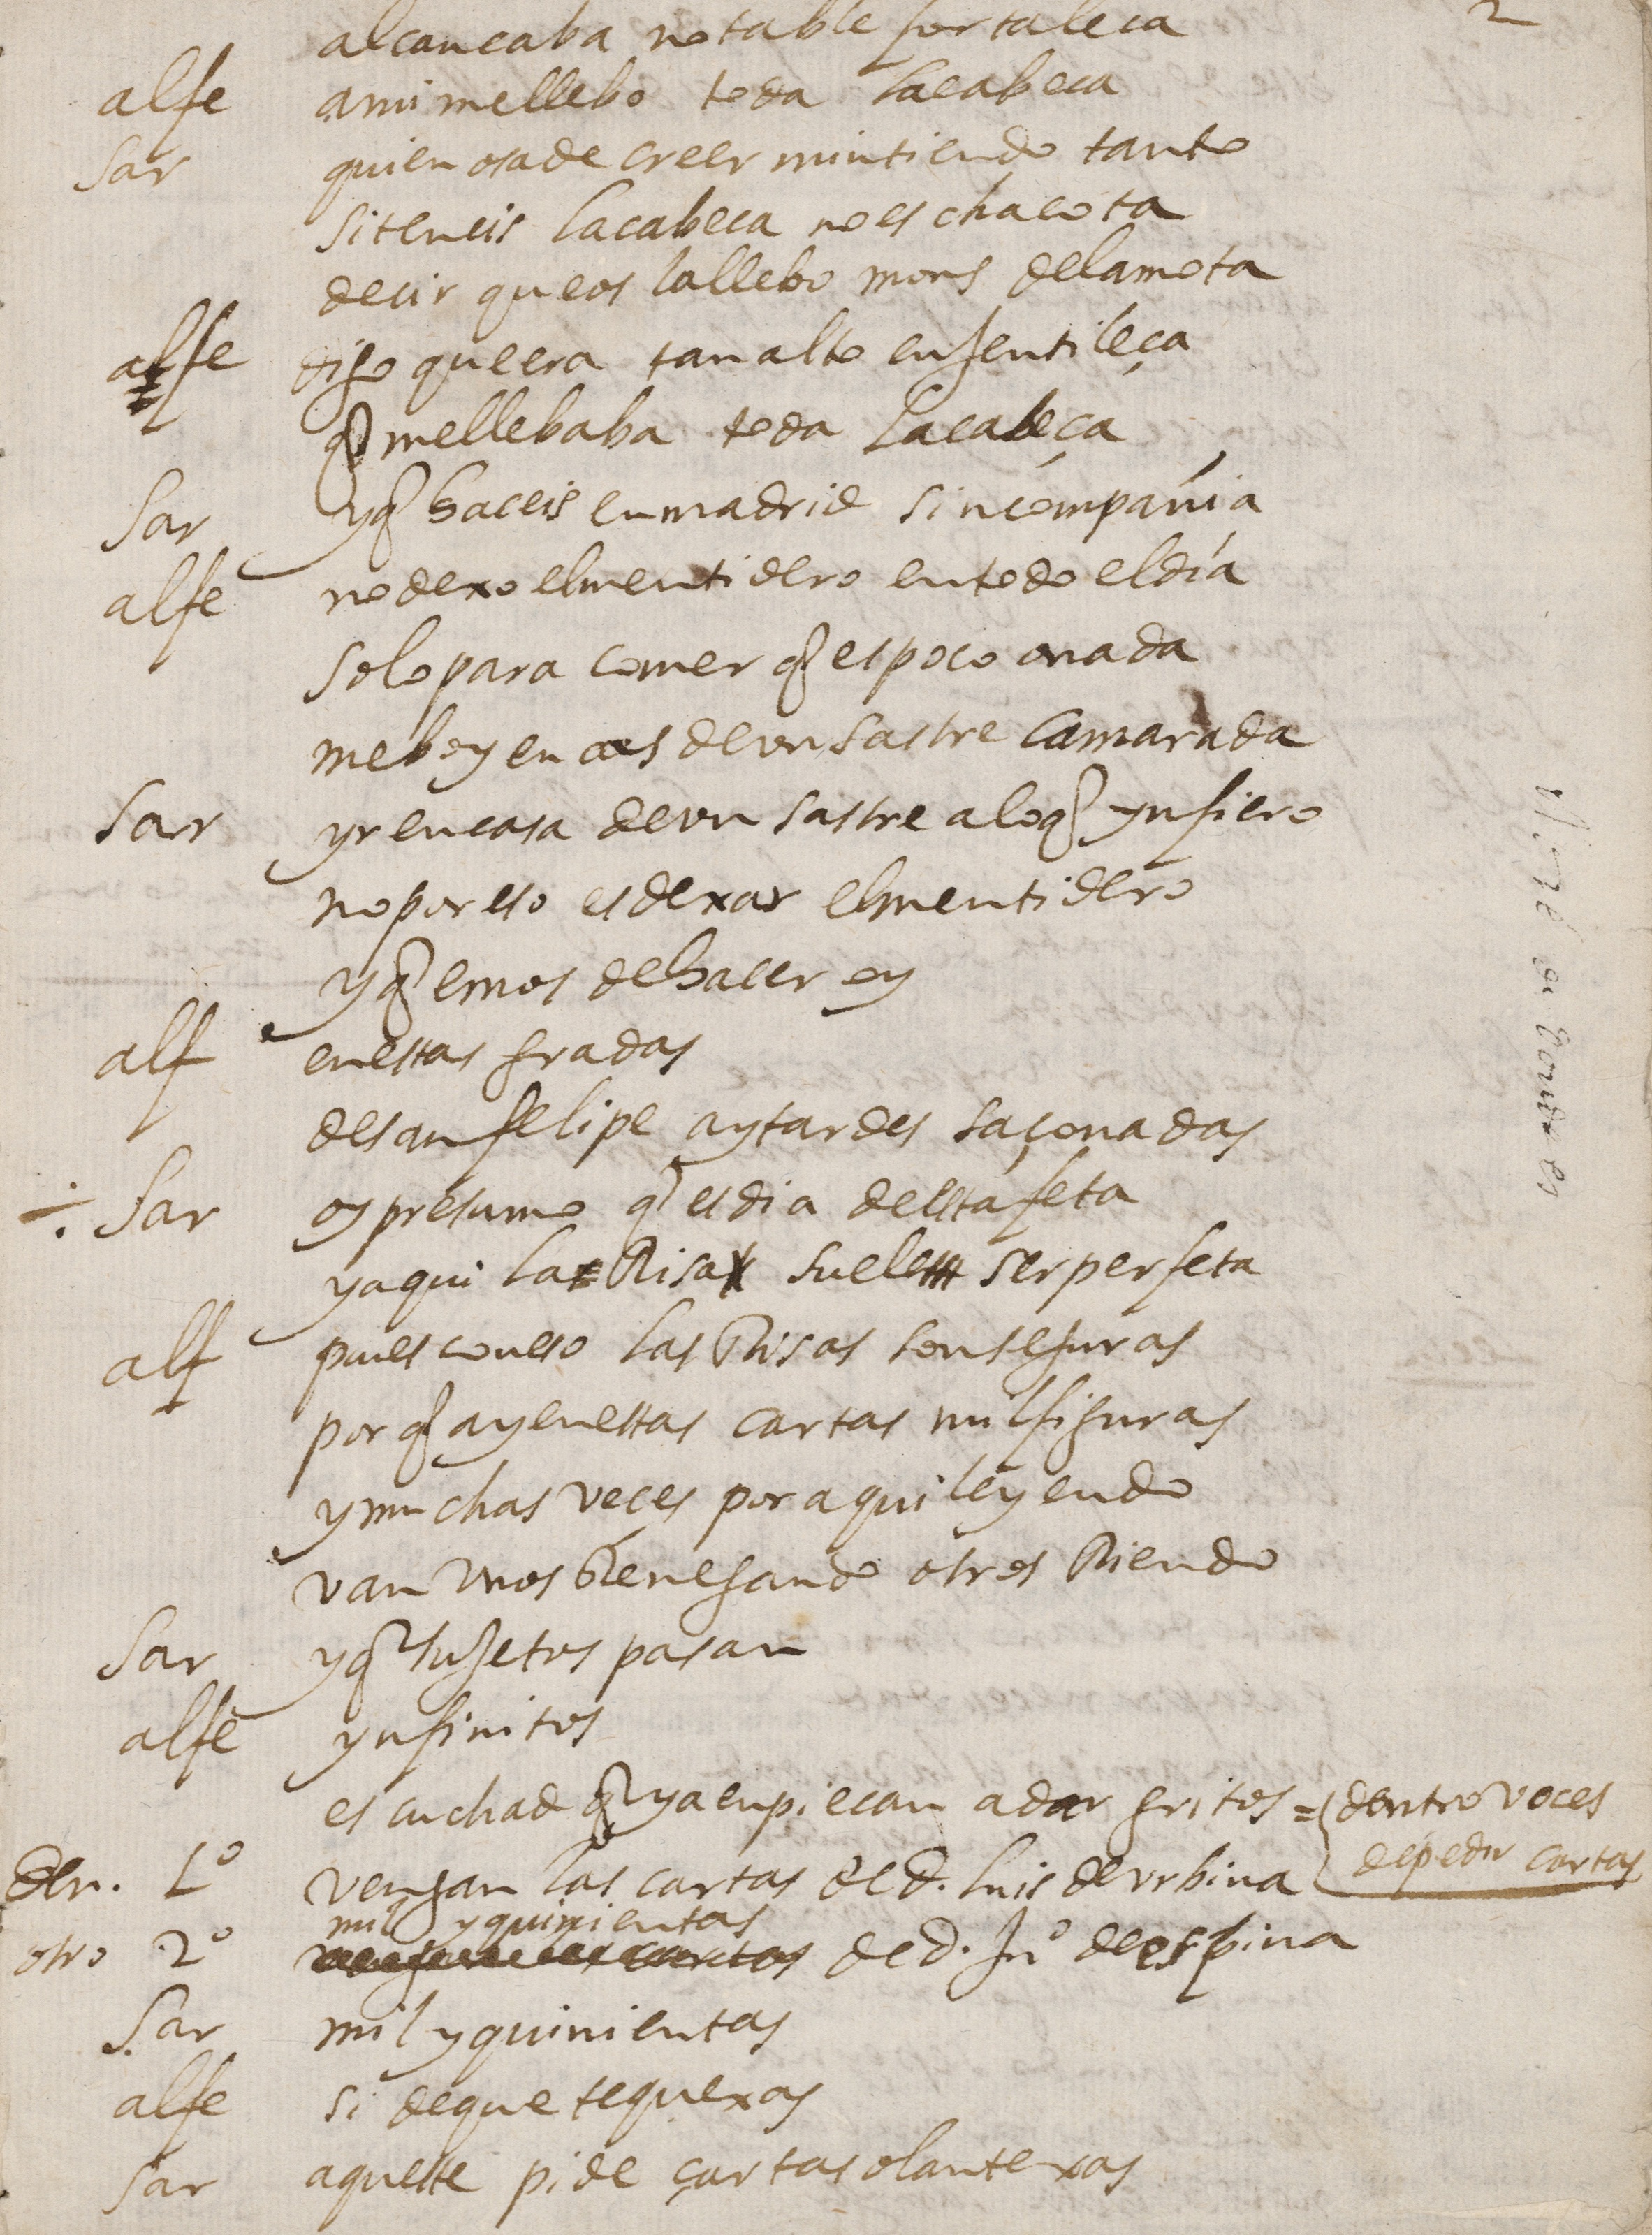 2
alcançaba notable fortaleça
alfe a mi mellebo toda lacabeça
Sar quien osa de creer mintiendo tanto
si teneis lacabeca no es chacota
decir que os lallebo mons delamota
alfe digo que era tan alto en jentileça
q mellebaba toda lacabeça
Sar y q haceis en madrid sin compañia
alfe no dexo el mentidero en todo el día
solo para comer q es poco o nada
me boy en cas de vn sastre camarada
Sar yr en casa de vn sastre a lo q ynfiero
no por eso es dexar el mentidero
y q emos de hacer oy
alf en estas gradas
de san felipe ay tardes saçonadas
Sar oy presumo q es dia de estafeta
y aqui la Risa suele ser perfeta
alf pues con eso las Risas son seguras
por q ay en estas cartas mil figuras
y muchas veces por aqui leyendo
van vnos Renegando otros Riendo
Sar y q sujetos pasan
alfe ynfinitos
escuchad q ya enpiecan a dar gritos = dentro voces
de pedir cartas
Den. 1º vengan las cartas de d. luis de vrbina
mil y quinientas
otro 2º de d. Juº de espina
Sar mil y quinientas
alfe si de que te quexas
Sar aqueste pide cartas o lantexas